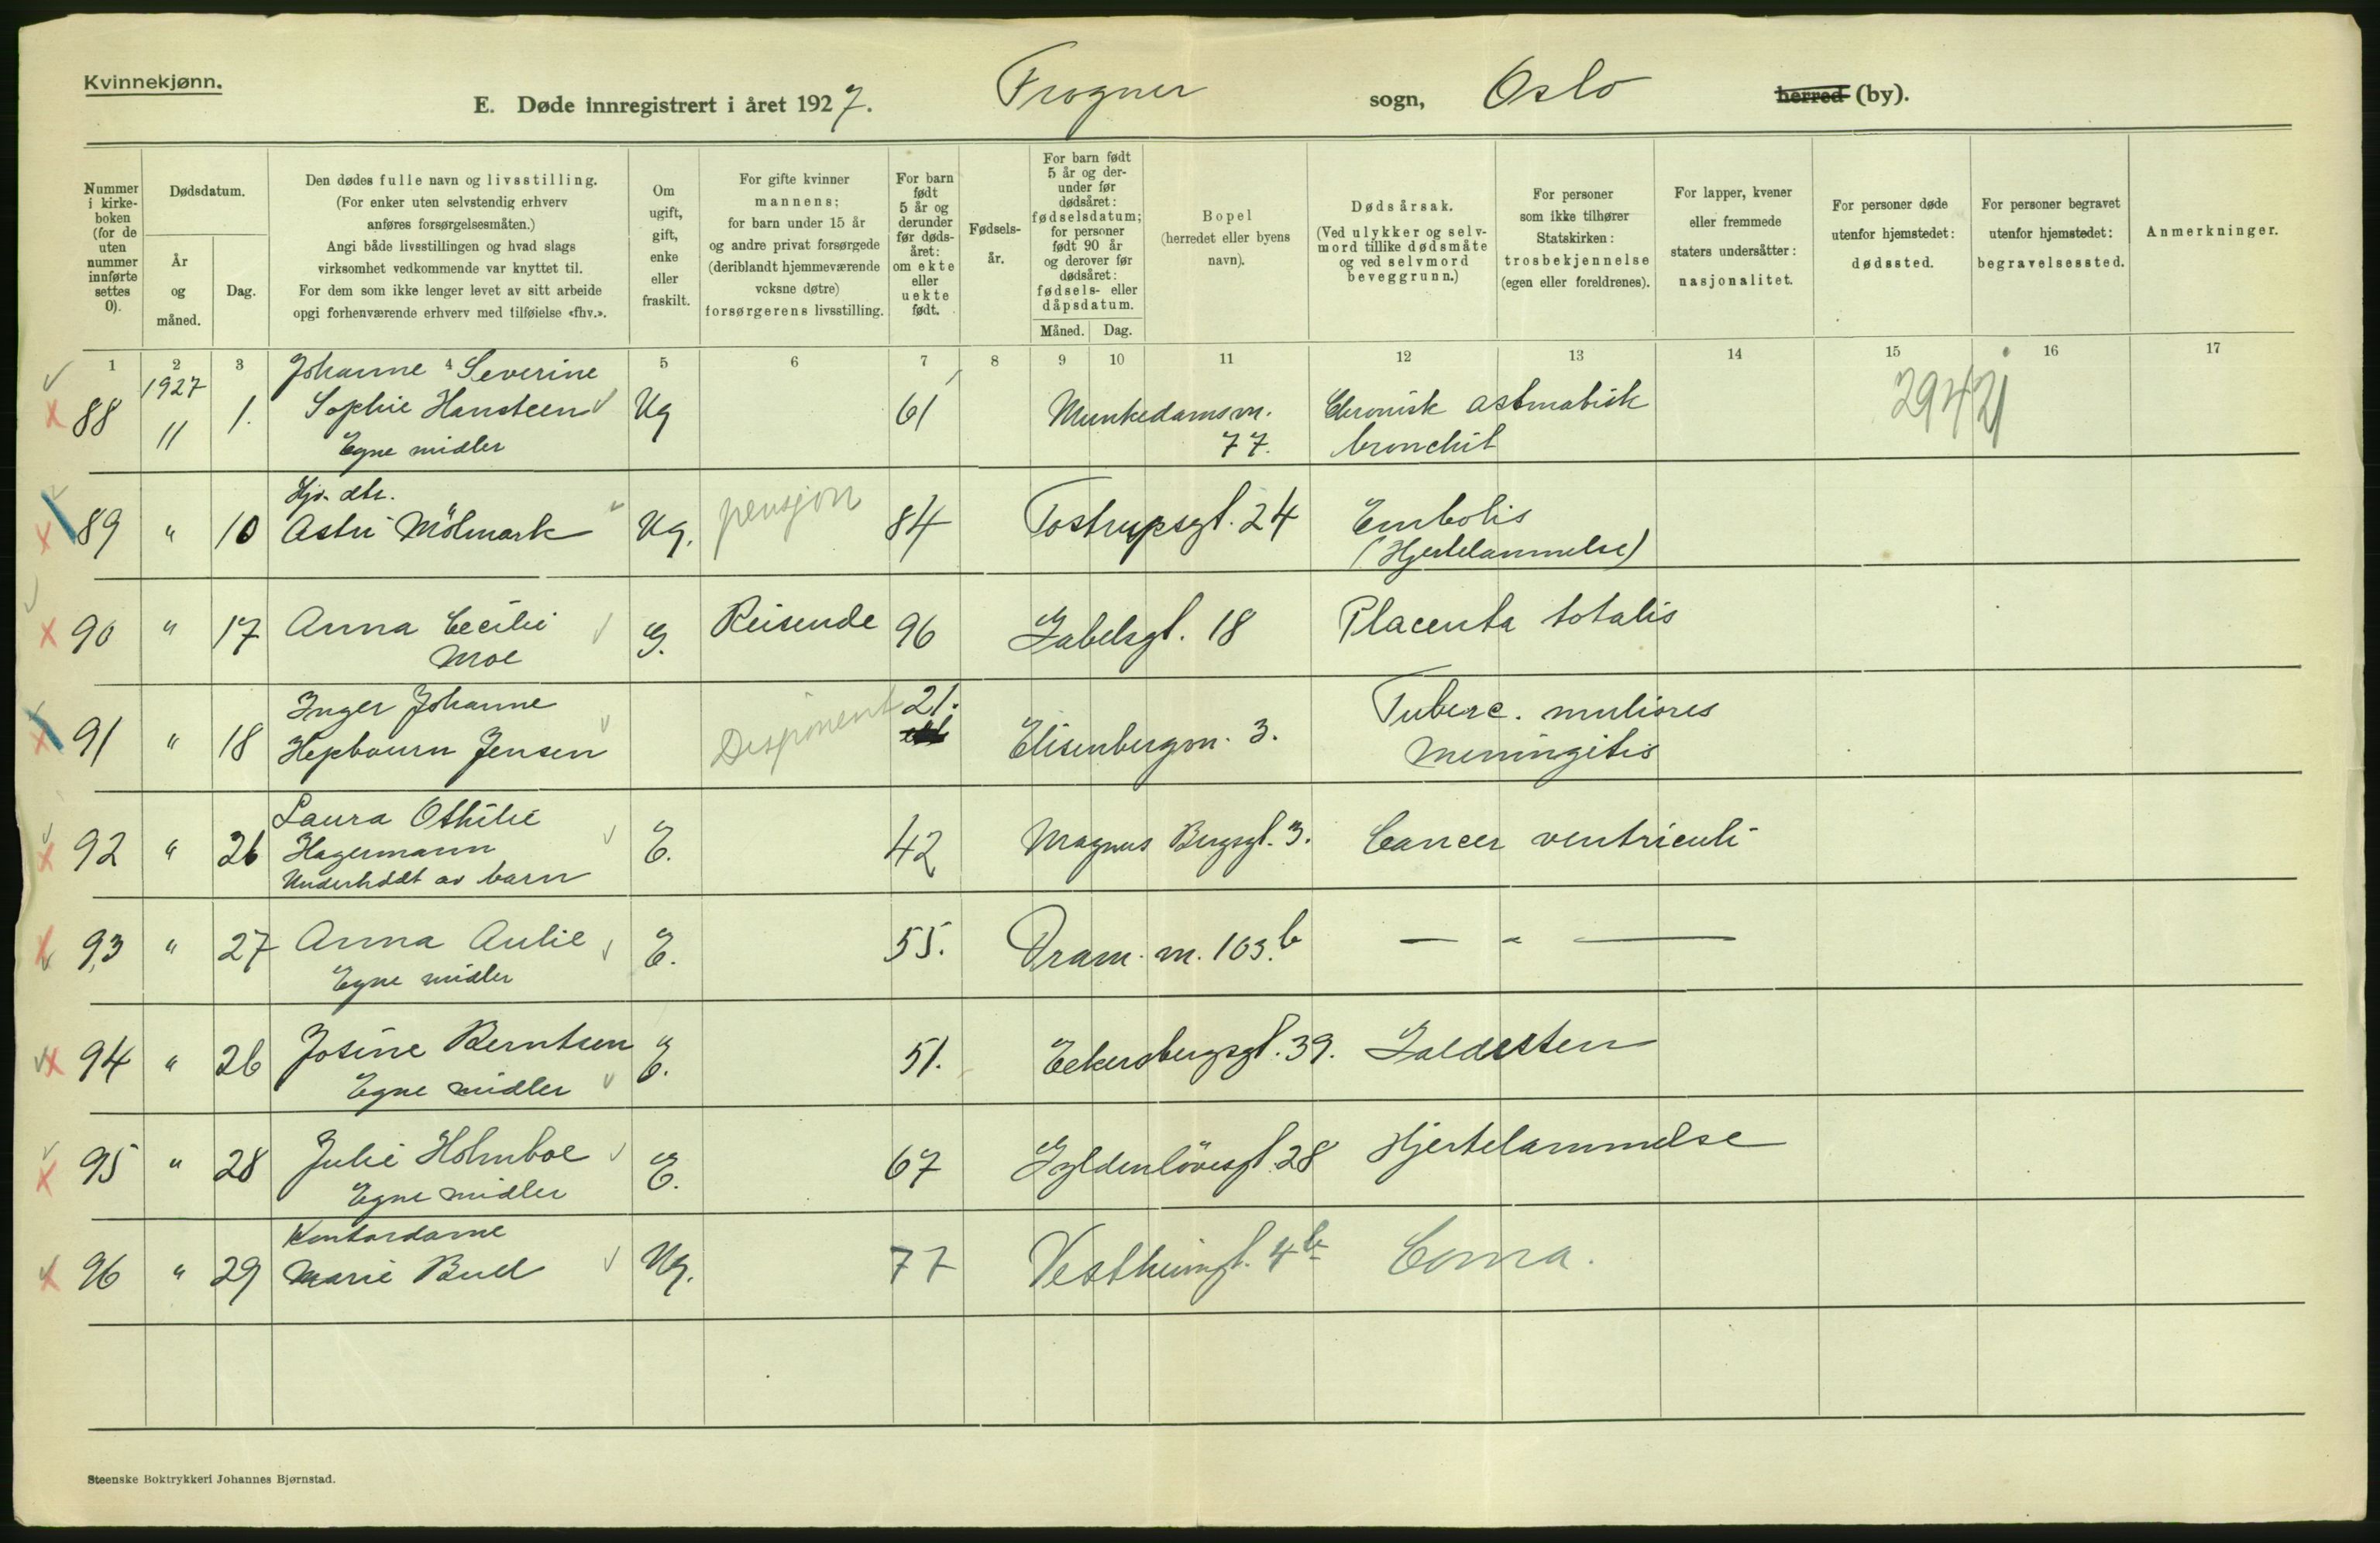 Kvinnekjønn.
E. Døde innregistrert i året 1927. Frogner sogn, Oslo herred (by).
Nummer i kirke-boken (for de uten nummer innførte settes 0).
Dødsdatum.
År og måned.
Dag.
Den dødes fulle navn og livsstilling.
(For enker uten selvstendig erhverv
anføres forsørgelsesmåten.)
Angi både livsstillingen og hvad slags
virksomhet vedkommende var knyttet til.
For dem som ikke lenger levet av sitt arbeide
opgi forhenværende erhverv med tilføielse «fhv.».
Om ugift, gift, enke eller fraskilt.
For gifte kvinner
mannens;
for barn under 15 år
og andre privat forsørgede
(deriblandt hjemmeværende
voksne døtre)
forsørgerens livsstilling.
For barn født 5 år og derunder før døds-året: om ekte eller uekte født.
Fødsels-år.
For barn født
5 år og der-
under før
dødsåret:
fødselsdatum;
for personer
født 90 år
og derover før
dødsåret:
fødsels- eller
dåpsdatum.
Måned. Dag.
Bopel
(herredet eller byens
navn).
Dødsårsak.
(Ved ulykker og selv-
mord tillike dødsmåte
og ved selvmord
beveggrunn.)
For personer
som ikke tilhører
Statskirken:
trosbekjennelse
(egen eller foreldrenes).
For lapper, kvener
eller fremmede
staters undersåtter:
nasjonalitet.
For personer døde
utenfor hjemstedet:
dødssted.
For personer begravet
utenfor hjemstedet:
begravelsessted.
Anmerkninger.
1 2 3 4 5 6 7 8 9 10 11 12 13 14 15 16 17
Johanne Severine
88 1927 11 1. Sophie Hansteen Ug 61 Munkedamsvn. 77. Chronisk astmatisk
Egne midler bronchit
Hjv. dtr.
89 " 10 Astri Mölmark Ug. pensjon 84 Tostrupsgt. 24 Embolis
(Hjertelammelse)
90 " 17 Anna Cecilie G. Reisende 96 Gabelsgt. 18 Placenta totalis
Moe
Inger Johanne 21. Tuberc.
91 " 18 Hepbourn Jensen Disponent Elisenbergvn. 3. Meningitis
Laura Othilie
92 " 26 Hagermann E. 42 Magnus Bergsgt. 3. Cancer ventriculi
Underholdt av barn
93 " 27 Anna Aulie E. 55. Dram. vn. 103 b — " —
Egne midler
94 " 26 Josine Berntsen E. 51. Eckersbergsgt. 39. Galdesten
Egne midler
95 " 28 Julie Holmboe E. 67 Gyldenlövesgt. 28 Hjertelammelse
Egne midler
Kontordame
96 " 29 Marie Bull Ug. 77 Vestheimgt. 4 b Coma.
Steenske Boktrykkeri Johannes Bjørnstad.